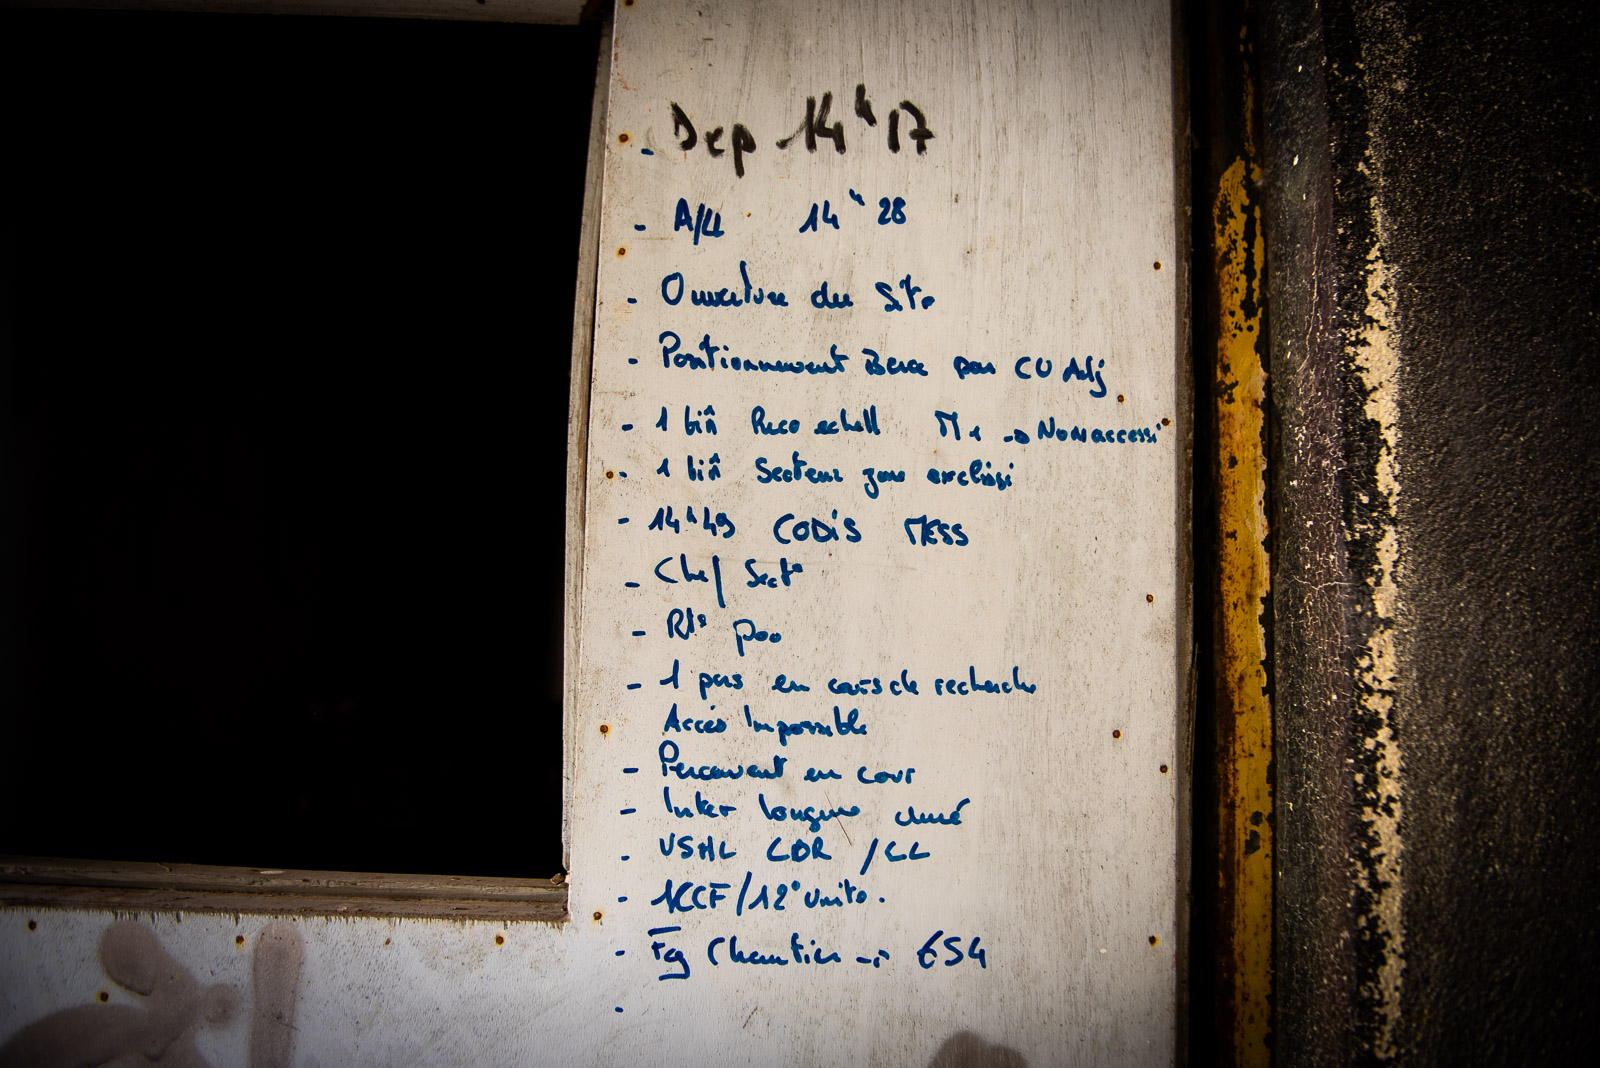 - Dep 14h17
- A/LL 14h28
- Ouverture du Site
- Positionnement Base par CU Adj
- 1 bin Reco echell M1 → Non accessi
- 1 bin Secteur zone exclusi
- 14h49 CODIS MESS
- Chef Sect°
- 1 pers en cours de recherche
Accès Impossible
- Percement en cour
- Inter longue durée
- VSML CDR /LL
- 1CCF/12° Unite.
- Eg Chantier → ES4
-